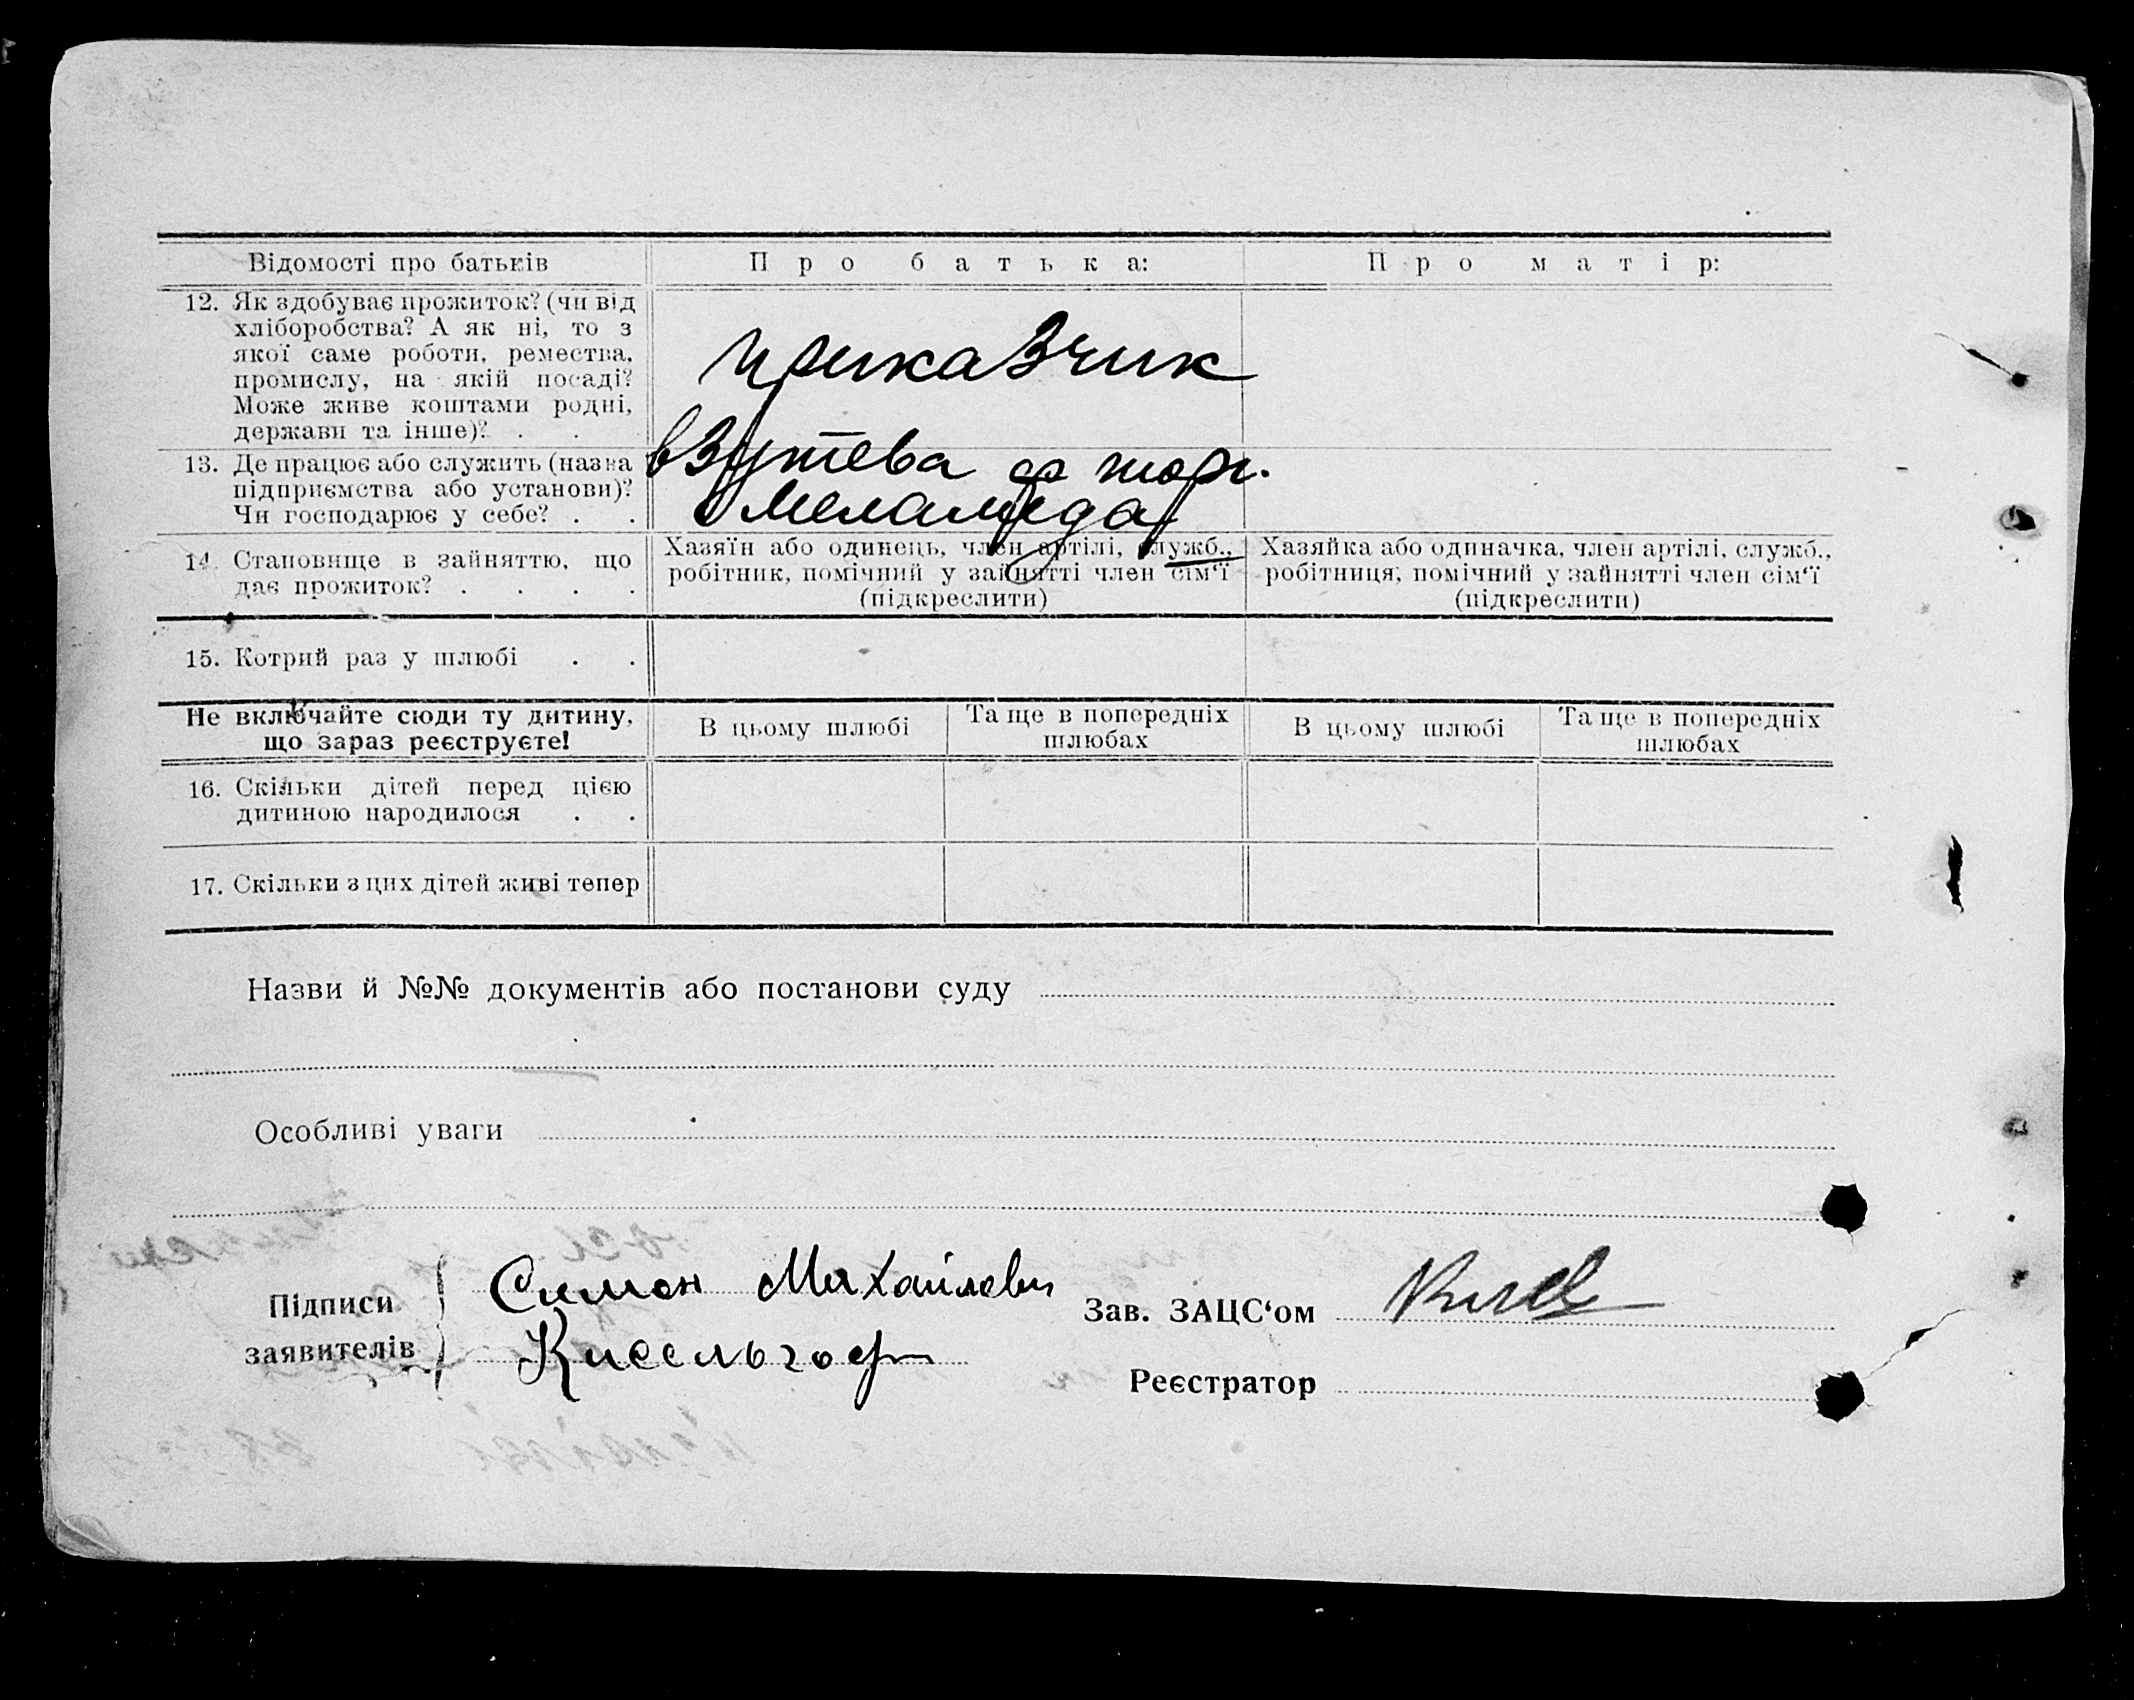 Відомості про батьків
Про батька:
Про матір:
12. Як здобуває прожиток? (чи від
хліборобства? А як ні, то з
якої саме роботи, ремества,
промислу, на якій посаді?
Може живе коштами родні,
держави та інше)? . .
приказчик
13. Де працює або служить (назва
підприємства або установи)?
Чи господарює у себе? . .
взутева торг.
Меламеда
14. Становище в зайняттю, що
дає прожиток? . . . .
Хазяїн або одинець, член артілі, служб.,
робітник, помічний у зайнятті член сім‘ї
(підкреслити)
Хазяйка або одиначка, член артілі, служб.,
робітниця, помічний у зайнятті член сім‘ї
(підкреслити)
15. Котрий раз у шлюбі . .
Не включайте сюди ту дитину,
що зараз реєструєте!
В цьому шлюбі
Та ще в попередніх
шлюбах
В цьому шлюбі
Та ще в попередніх
шлюбах
16. Скільки дітей перед цією
дитиною народилося . .
17. Скільки з цих дітей живі тепер
Назви й №№ документів або постанови суду
Особливі уваги
Підписи
заявителів
Симон Михайлович
Кисельгоф
Зав. ЗАЦС‘ом
Реєстратор